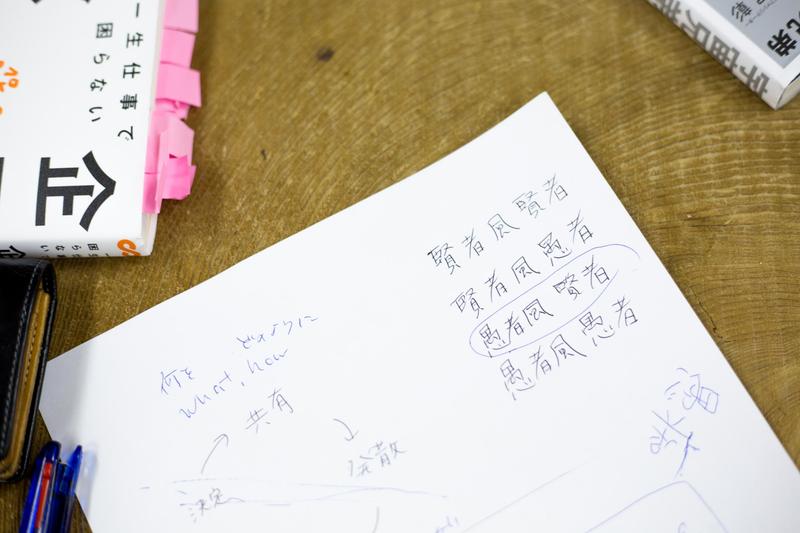 一生仕事で
困らない
企
宇宙兄弟
賢者風賢者
賢者風愚者
愚者風賢者
愚者風愚者
何を どのように
what, how
共有
発散
決定